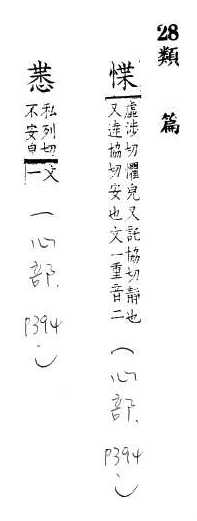 28類 篇
惵 虛涉切懼皃又託協切靜也
又達協切安也文一重音二
(心部. P394)
𢠡 私列切
不安皃
文一
(心部. P394)